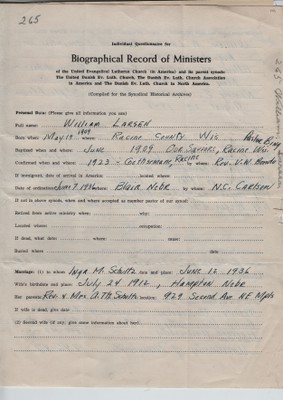 265
Individual Questionnaire for
Biographical Record of Ministers
of the United Evangelical Lutheran Church (in America) and its parent synods:
The United Danish Ev. Luth. Church, The Danish Ev. Luth. Church Association
in America and The Danish Ev. Luth. Church in North America.
(Compiled for the Synodical Historical Archives)
Personal Data: (Please give all information you can)
Full name: WILLIAM LARSEN
Born when: May 19 1909 where: Racine County Wis
Baptized when and where: JUNE 1909 OUR SAVIORS, RACINE WIS
Confirmed when and where: 1923 - GETHSEMANE, RACINE by whom: Rev. V.W.
If immigrated, date of arrival in America located where:
Date of ordination: June 7, 1936 where: Blair Nebr by whom: N.C. Carlson
If not in above synods, when and where accepted as member pastor of our synod:
Retired from active ministry when: why:
Located where: occupation:
If dead, what date: where: cause:
Buried where date
Marriage: (1) to whom Inga M. Schultz date and place: JUNE 12 1936
Wife's birthdate and place: July 24 1912, Hampton Nebr
Her parents: Rev & Mrs. A. Th. Schultz location: 929 Second Ave N.E Mpls
If wife is dead, give date
(2) Second wife (if any, give same information about her):